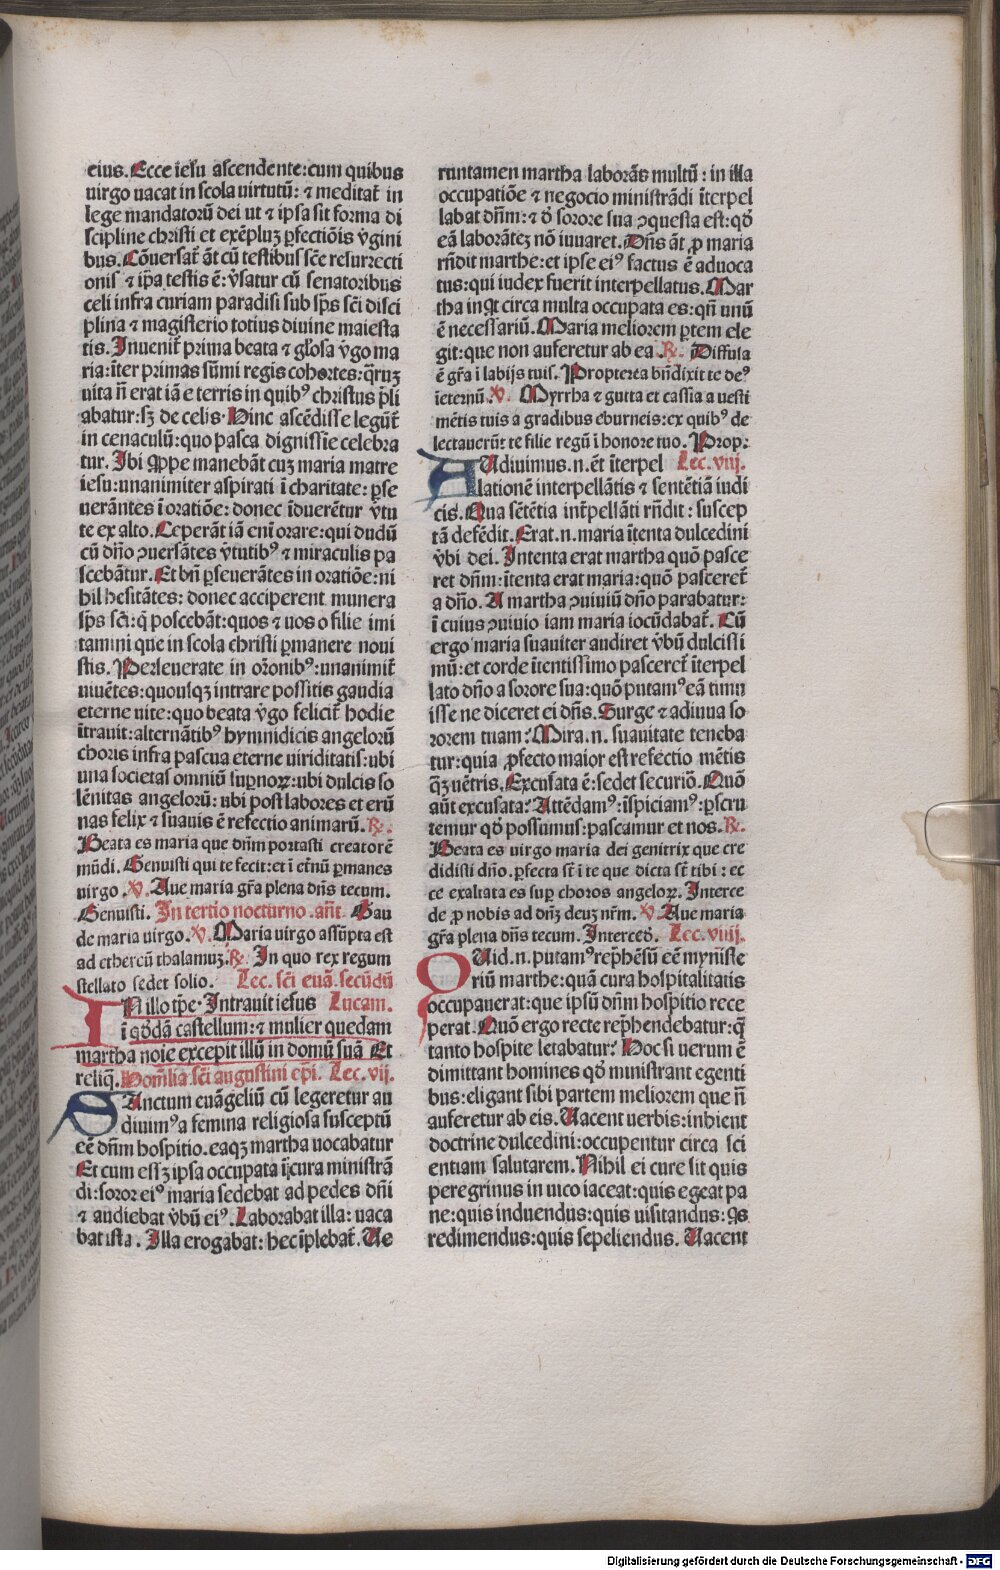 eius. Ecce iesu ascendente: cum quibus
virgo vacat in scola virtutū: ⁊ meditat̄ in
lege mandatorū dei ut ⁊ ipsa sit forma di
scipline christi et exēpluꝫ ꝑfectiōis ꝟgini
bus. Cōuersat̄ āt cū testibus sc̄e resurrecti
onis ⁊ ip̄a testis ē: ꝟsatur cū senatoribus
celi infra curiam paradisi sub sp̄s sc̄i disci
plina ⁊ magisterio totius diuine maiesta
tis. Inuenit̄ prima beata ⁊ gl̄osa ꝟgo ma
ria: īter primas sūmi regis cohortes: q̄ruꝫ
vita n̄ erat iā e terris in quibꝰ christus p̄li
abatur: sꝫ de celis. Hinc ascēdisse legūt̄
in cenaculū: quo pasca dignissīe celebra
tur. Ibi q̄ppe manebāt cuꝫ maria matre
iesu: unanimiter aspirati ī charitate: ꝑse
uerātes ī oratiōe: donec īduerētur ꝟtu
te ex alto. Ceperāt iā eni orare: qui dudū
cū dn̄o ꝯuersātes ꝟtutibꝰ ⁊ miraculis pa
scebātur. Et bn̄ ꝑseuerātes in oratiōe: ni
hil hesitātes: donec acciperent munera
sp̄s sc̄i: q̄ poscebāt: quos ⁊ uos o filie imi
tamini que in scola christi ꝑmanere noui
stis. Perseuerate in or̄onibꝰ: unanimit̄
viuētes: quousqꝫ intrare possitis gaudia
eterne vite: quo beata ꝟgo felicit̄ hodie
ītrauit: alternātibꝰ hymnidicis angelorū
choris infra pascua eterne viriditatis: ubi
una societas omniū suꝑnoꝝ: ubi dulcis so
lēnitas angelorū: ubi post labores et erū
nas felix ⁊ suauis ē refectio animarū. ℟.
Beata es maria que dn̄m portasti creatorē
mūdi. Genuisti qui te fecit: et ī et̄nū ꝑmanes
virgo. ℣. Aue maria gr̄a plena dn̄s tecum.
Genuisti. In tertio nocturno. an̄t. Gau
de maria virgo. ℣. Maria virgo assūpta est
ad ethereū thalamuꝫ. ℟. In quo rex regum
stellato sedet solio. Lec. sc̄i euā. secūdū
IN illo tp̄e. Intrauit iesus Lucam.
ī qōdā castellum: ⁊ mulier quedam
martha noīe excepit illū in domū suā Et
reliq̄. Homīlia sc̄i augustini ep̄i. Lec. vij.
SAnctum euāgeliū cū legeretur au
diuimꝰ a femina religiosa susceptū
eē dn̄m hospitio. eaqꝫ martha vocabatur
Et cum essꝫ ipsa occupata ī cura ministrā
di: soror eiꝰ maria sedebat ad pedes dn̄i
⁊ audiebat ꝟbū eiꝰ. Laborabat illa: vaca
bat ista. Illa erogabat: hec īplebat̄. Ve
runtamen martha laborās multū: in illa
occupatiōe ⁊ negocio ministrādi īterpel
labat dn̄m: ⁊ đ sorore sua ꝯquesta est: qđ
eā laborātēꝫ nō iuuaret. Dn̄s āt ꝓ maria
rn̄dit marthe: et ipse eiꝰ factus ē aduoca
tus: qui iudex fuerit interpellatus. Mar
tha inq̄t circa multa occupata es: qn̄ unū
ē necessariū. Maria meliorem ꝑtem ele
git: que non auferetur ab ea. ℟. Diffusa
ē gr̄a ī labijs tuis. Propterea bn̄dixit te deꝰ
īeternū. ℣. Myrrha ⁊ gutta et cassia a vesti
mētis tuis a gradibus eburneis: ex quibꝰ de
lectauerūt te filie regū ī honore tuo. Prop:
AUdiuimus. n. ēt īterpel Lec. viij.
lationē interpellātis ⁊ sentētiā iudi
cis. Qua sētētia int̄pellāti rn̄dit: suscep
tā defēdit. Erat. n. maria ītenta dulcedini
ꝟbi dei. Intenta erat martha quō pasce
ret dn̄m: ītenta erat maria: quō pasceret̄
a dn̄o. A martha ꝯuiuiū dn̄o parabatur:
ī cuius ꝯuiuio iam maria iocūdabat̄. Cū
ergo maria suauiter audiret ꝟbū dulcissi
mū: et corde ītentissimo pasceret̄ īterpel
lato dn̄o a sorore sua: quō putamꝰ eā timu
isse ne diceret ei dn̄s. Surge ⁊ adiuua so
rorem tuam? Mira. n. suauitate teneba
tur: quia ꝓfecto maior est refectio mētis
qꝫ vētris. Excusata ē: sedet securiō. Quō
aūt excusata? Attēdamꝰ: īspiciamꝰ: ꝑscru
temur qđ possumus: pascamur et nos. ℟.
Beata es virgo maria dei genitrix que cre
didisti dn̄o. ꝑfecta sūt ī te que dicta sūt tibi: ec
ce exaltata es suꝑ choros angeloꝝ. Interce
de ꝓ nobis ad dn̄ꝫ deuꝫ nr̄m. ℣. Aue maria
gr̄a plena dn̄s tecum. Interceđ. Lec. viiij.
QUid. n. putamꝰ rep̄hēsū eē myn̄iste
riū marthe: quā cura hospitalitatis
occupauerat: que ipsū dn̄m hospitio rece
perat. Quō ergo recte rep̄hendebatur: q̄
tanto hospite letabatur? Hoc si verum ē
dimittant homines qđ ministrant egenti
bus: eligant sibi partem meliorem que n̄
auferetur ab eis. Vacent verbis: inhient
doctrine dulcedini: occupentur circa sci
entiam salutarem. Nihil ei cure sit quis
peregrinus in vico iaceat: quis egeat pa
ne: quis induendus: quis visitandus: q̄s
redimendus: quis sepeliendus. Vacent
Digitalisierung gefördert durch die Deutsche Forschungsgemeinschaft - DFG